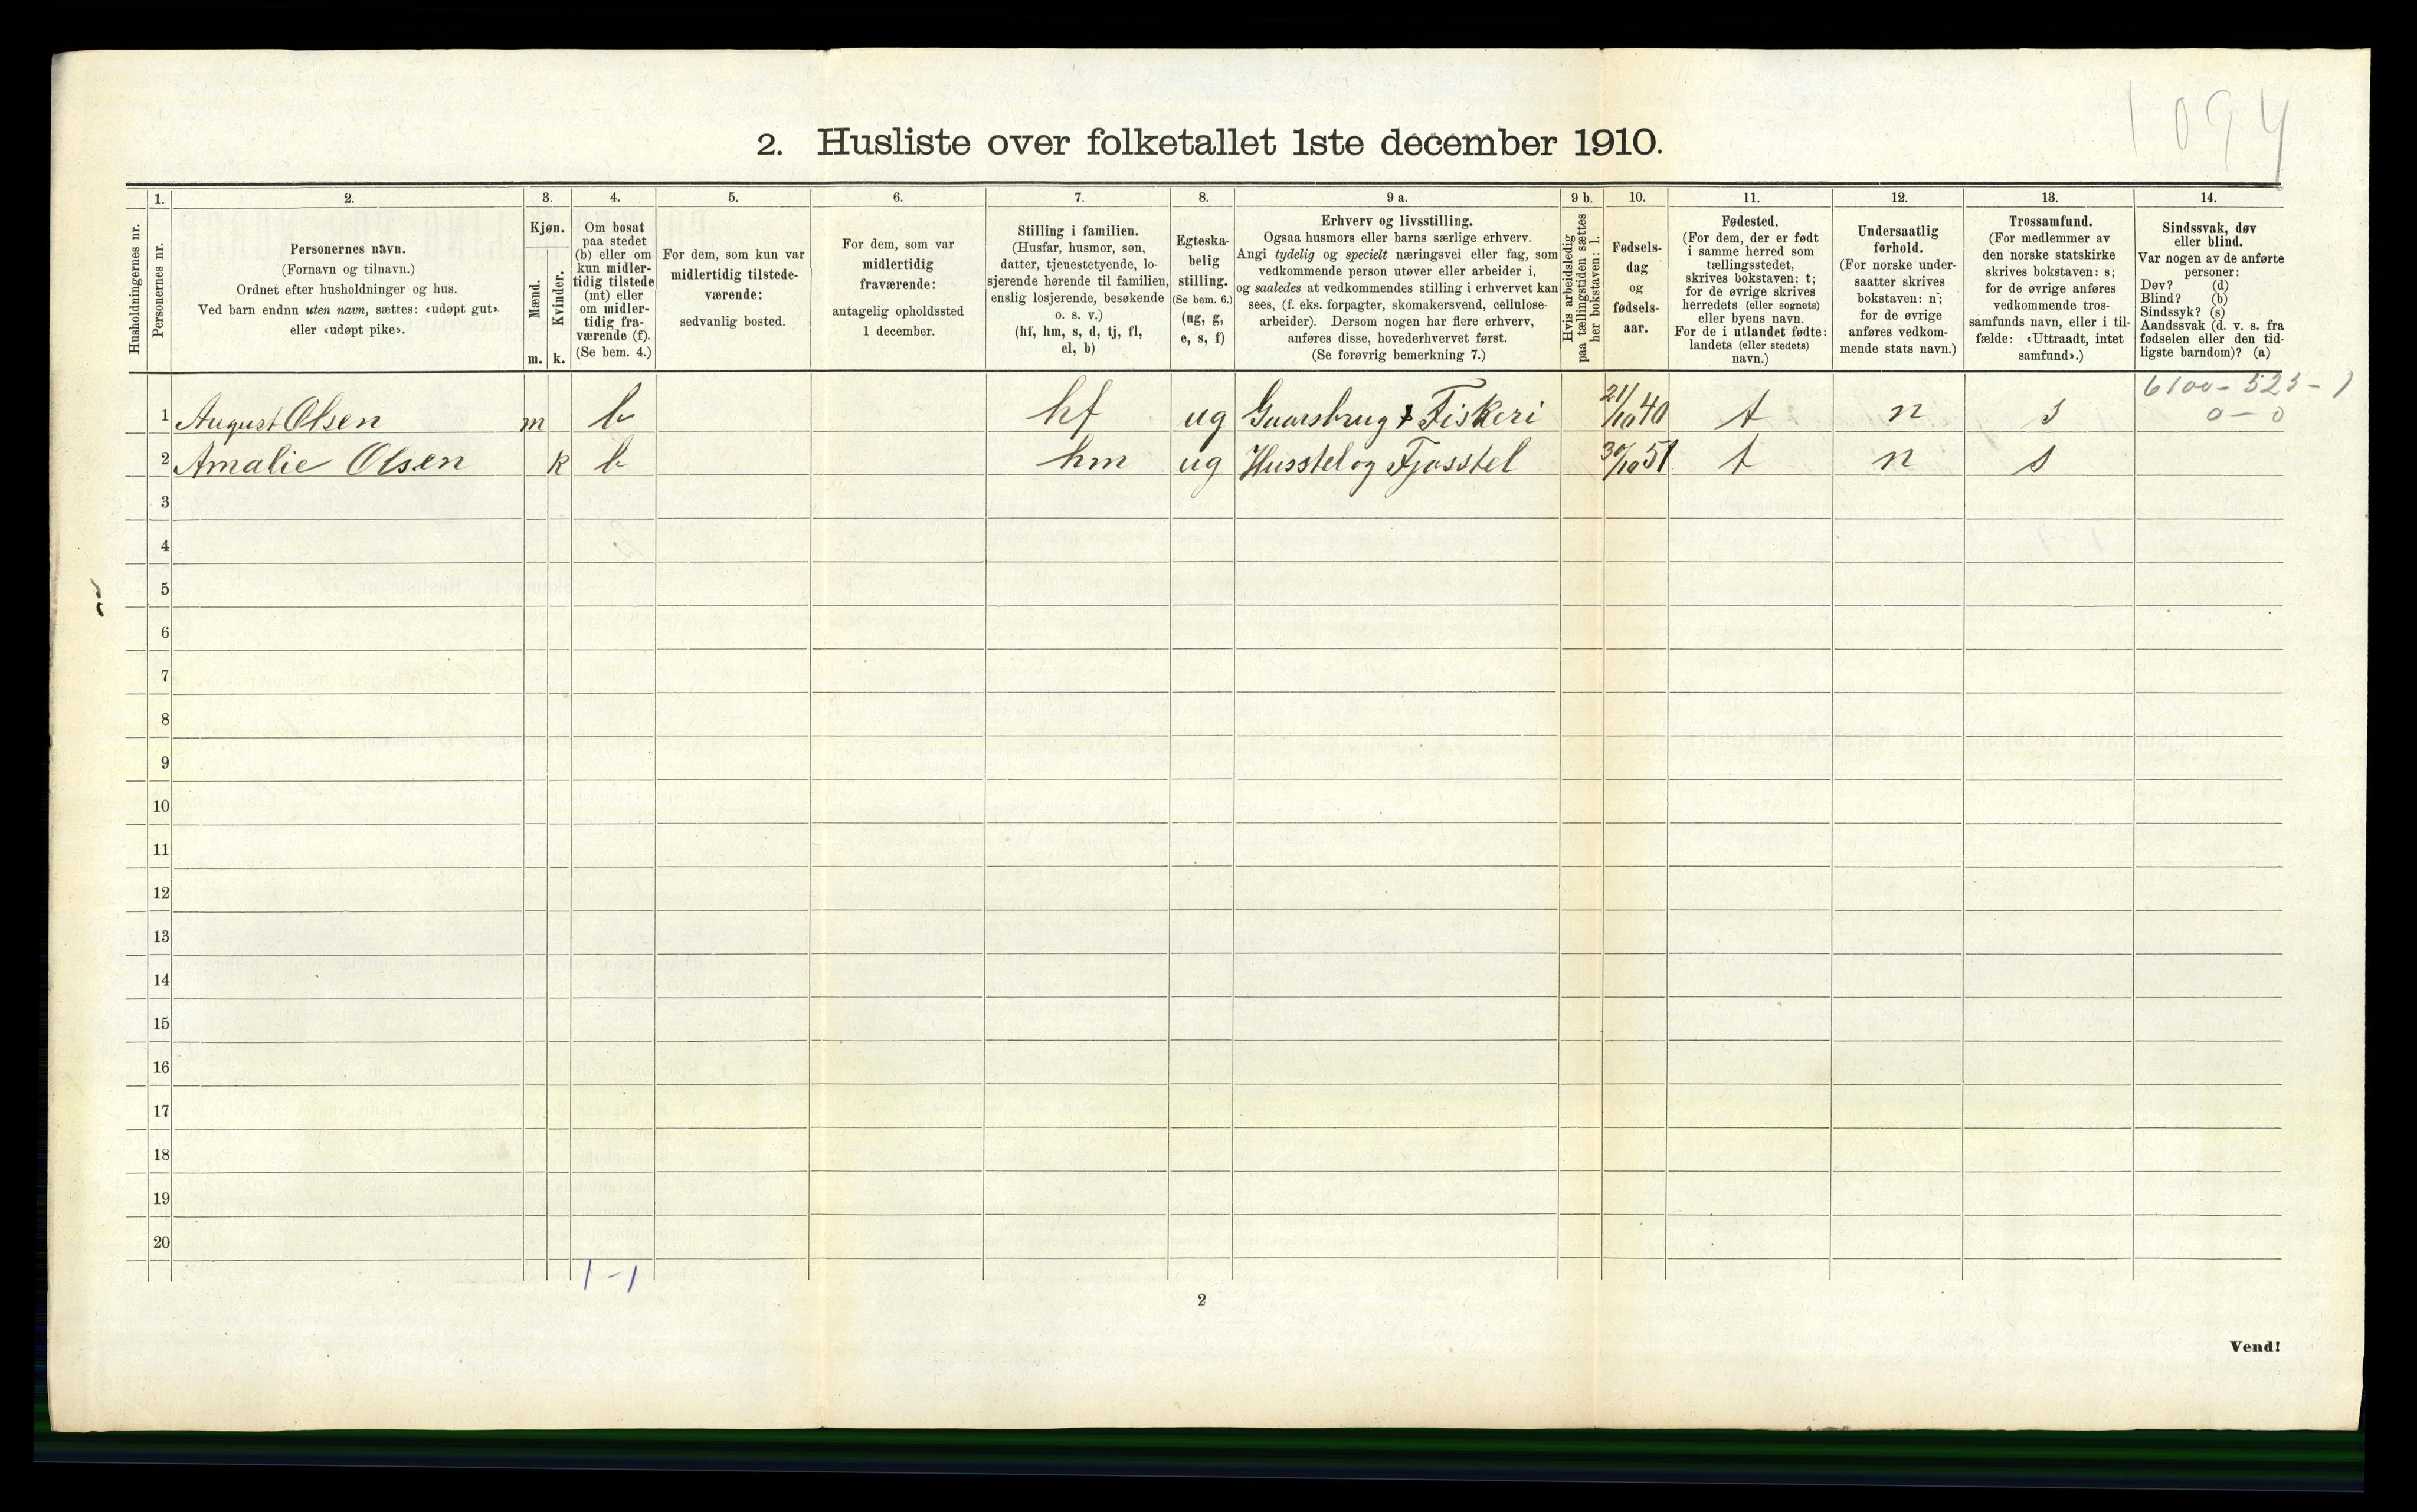 1094
2. Husliste over folketallet 1ste december 1910.
Husholdningernes nr.
1.
Personernes nr.
2.
Personernes navn.
(Fornavn og tilnavn.)
Ordnet efter husholdninger og hus.
Ved barn endnu uten navn, sættes: «udøpt gut»
eller «udøpt pike».
3.
Kjøn.
Mænd.
m.
Kvinder.
k.
4.
Om bosat
paa stedet
(b) eller om
kun midler-
tidig tilstede
(mt) eller
om midler-
tidig fra-
værende (f).
(Se bem. 4.)
5.
For dem, som kun var
midlertidig tilstede-
værende:
sedvanlig bosted.
6.
For dem, som var
midlertidig
fraværende:
antagelig opholdssted
1 december.
7.
Stilling i familien.
(Husfar, husmor, søn,
datter, tjenestetyende, lo-
sjerende hørende til familien,
enslig losjerende, besøkende
o. s. v.)
(hf, hm, s, d, tj, fl,
el, b)
8.
Egteska-
belig
stilling.
(Se bem. 6.)
(ug, g,
e, s, f)
9 a.
Erhverv og livsstilling.
Ogsaa husmors eller barns særlige erhverv.
Angi tydelig og specielt næringsvei eller fag, som
vedkommende person utøver eller arbeider i,
og saaledes at vedkommendes stilling i erhvervet kan
sees, (f. eks. forpagter, skomakersvend, cellulose-
arbeider). Dersom nogen har flere erhverv,
anføres disse, hovederhvervet først.
(Se forøvrig bemerkning 7.)
9 b.
Hvis arbeidsledig
paa tællingstiden sættes
her bokstaven: l.
10.
Fødsels-
dag
og
fødsels-
aar.
11.
Fødested.
(For dem, der er født
i samme herred som
tællingsstedet,
skrives bokstaven: t;
for de øvrige skrives
herredets (eller sognets)
eller byens navn.
For de i utlandet fødte:
landets (eller stedets)
navn.)
12.
Undersaatlig
forhold.
(For norske under-
saatter skrives
bokstaven: n;
for de øvrige
anføres vedkom-
mende stats navn.)
13.
Trossamfund.
(For medlemmer av
den norske statskirke
skrives bokstaven: s;
for de øvrige anføres
vedkommende tros-
samfunds navn, eller i til-
fælde: «Uttraadt, intet
samfund».)
14.
Sindssvak, døv
eller blind.
Var nogen av de anførte
personer:
Døv? (d)
Blind? (b)
Sindssyk? (s)
Aandssvak (d. v. s. fra
fødselen eller den tid-
ligste barndom)? (a)
6100-523-1
0-0
1 August Olsen m b hf ug Gaarsbrug & Fiskeri 21/10 40 t n s
2 Amalie Olsen k b hm ug Husstel og Fjosstel 30/10 51 t n s
3
4
5
6
7
8
9
10
11
12
13
14
15
16
17
18
19
20
1-1
2
Vend!